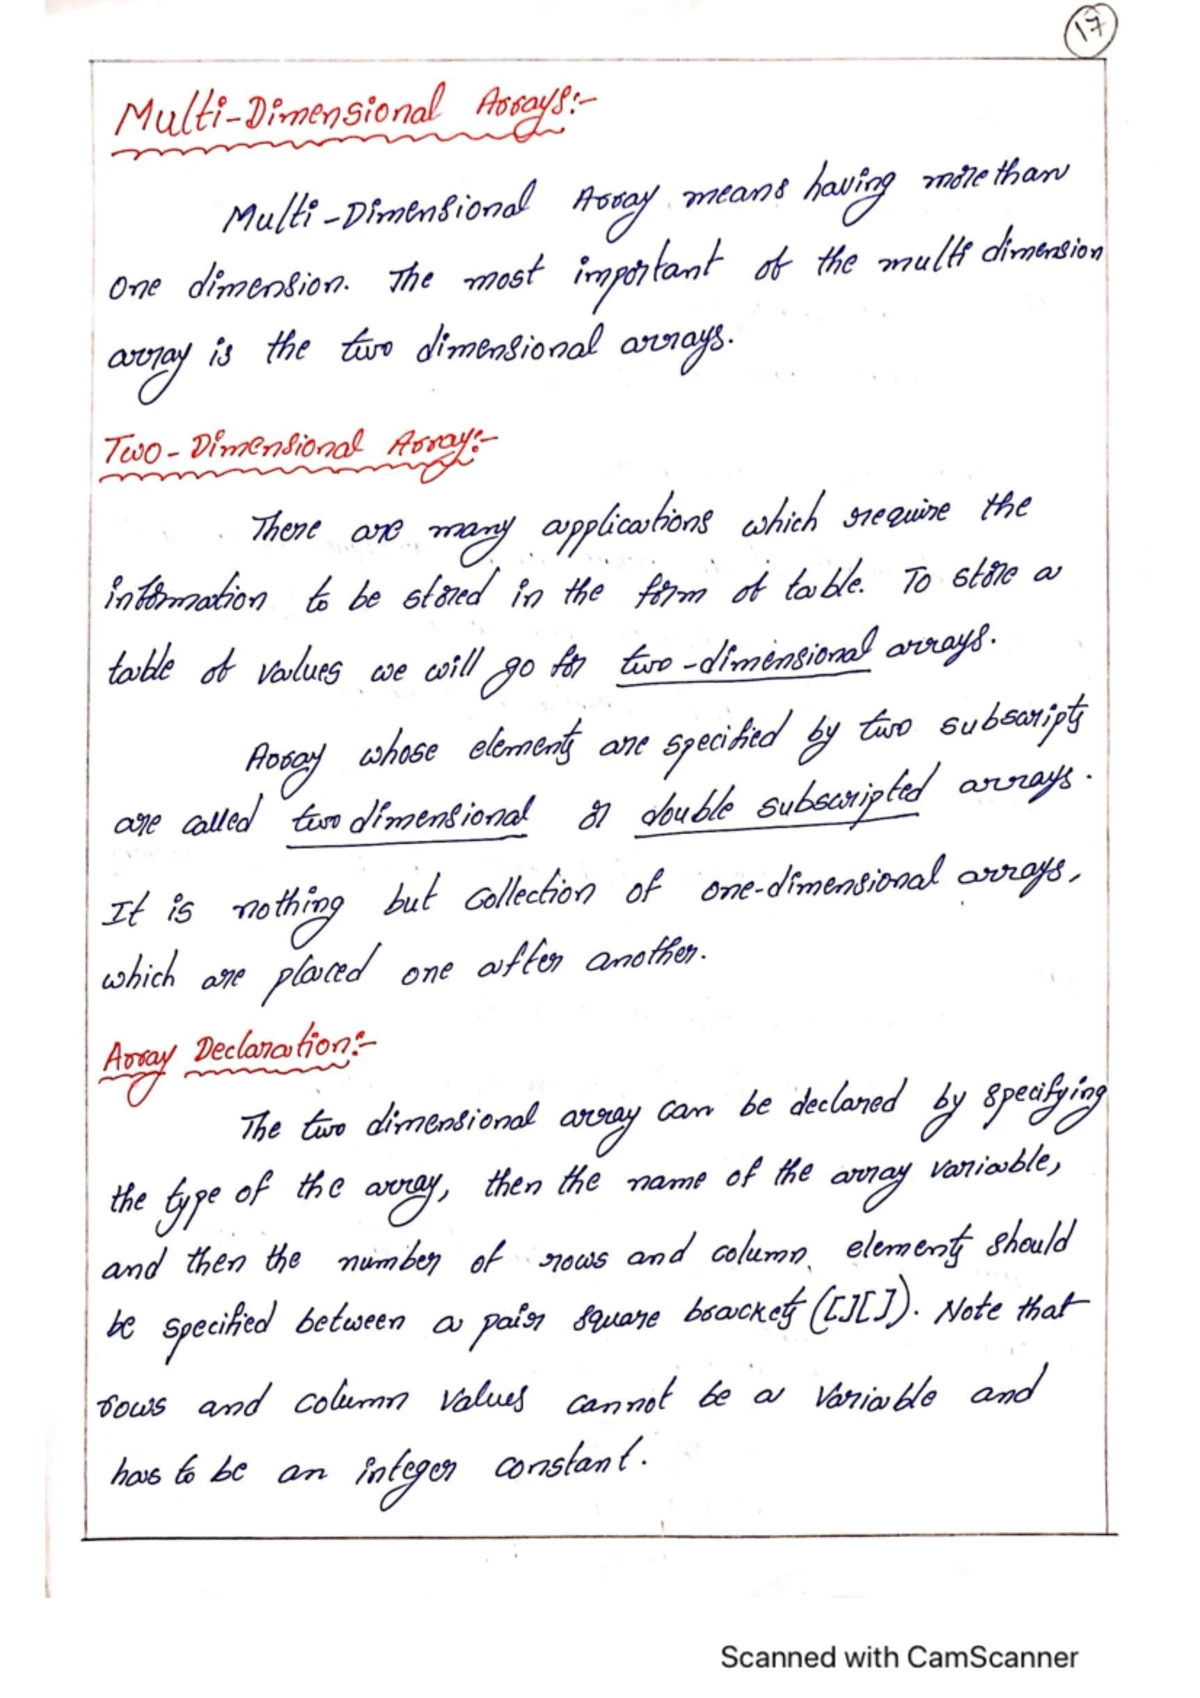 17
Multi-Dimensional Arrays:-
Multi-Dimensional Array means having more than
one dimension. The most important of the multi dimension
array is the two dimensional arrays.
Two-Dimensional Array:-
There are many applications which require the
information to be stored in the form of table. To store a
table of values we will go for two-dimensional arrays.
Array whose elements are specified by two subscripts
are called two dimensional or double subscripted arrays.
It is nothing but collection of one-dimensional arrays,
which are placed one after another.
Array Declaration:-
The two dimensional array can be declared by specifying
the type of the array, then the name of the array variable,
and then the number of rows and column elements should
be specified between a pair square brackets ([][]). Note that
rows and column values cannot be a variable and
has to be an integer constant.
Scanned with CamScanner